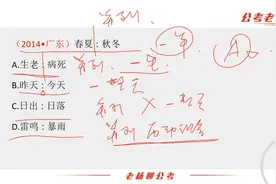 并列
公考老
（2014•广东）春夏：秋冬
一年
A
A.生老：病死
并列
一生
B.昨天：今天
一
C.日出：日落
并列 X 一
D.雷鸣：暴雨
并列
老杨聊公考